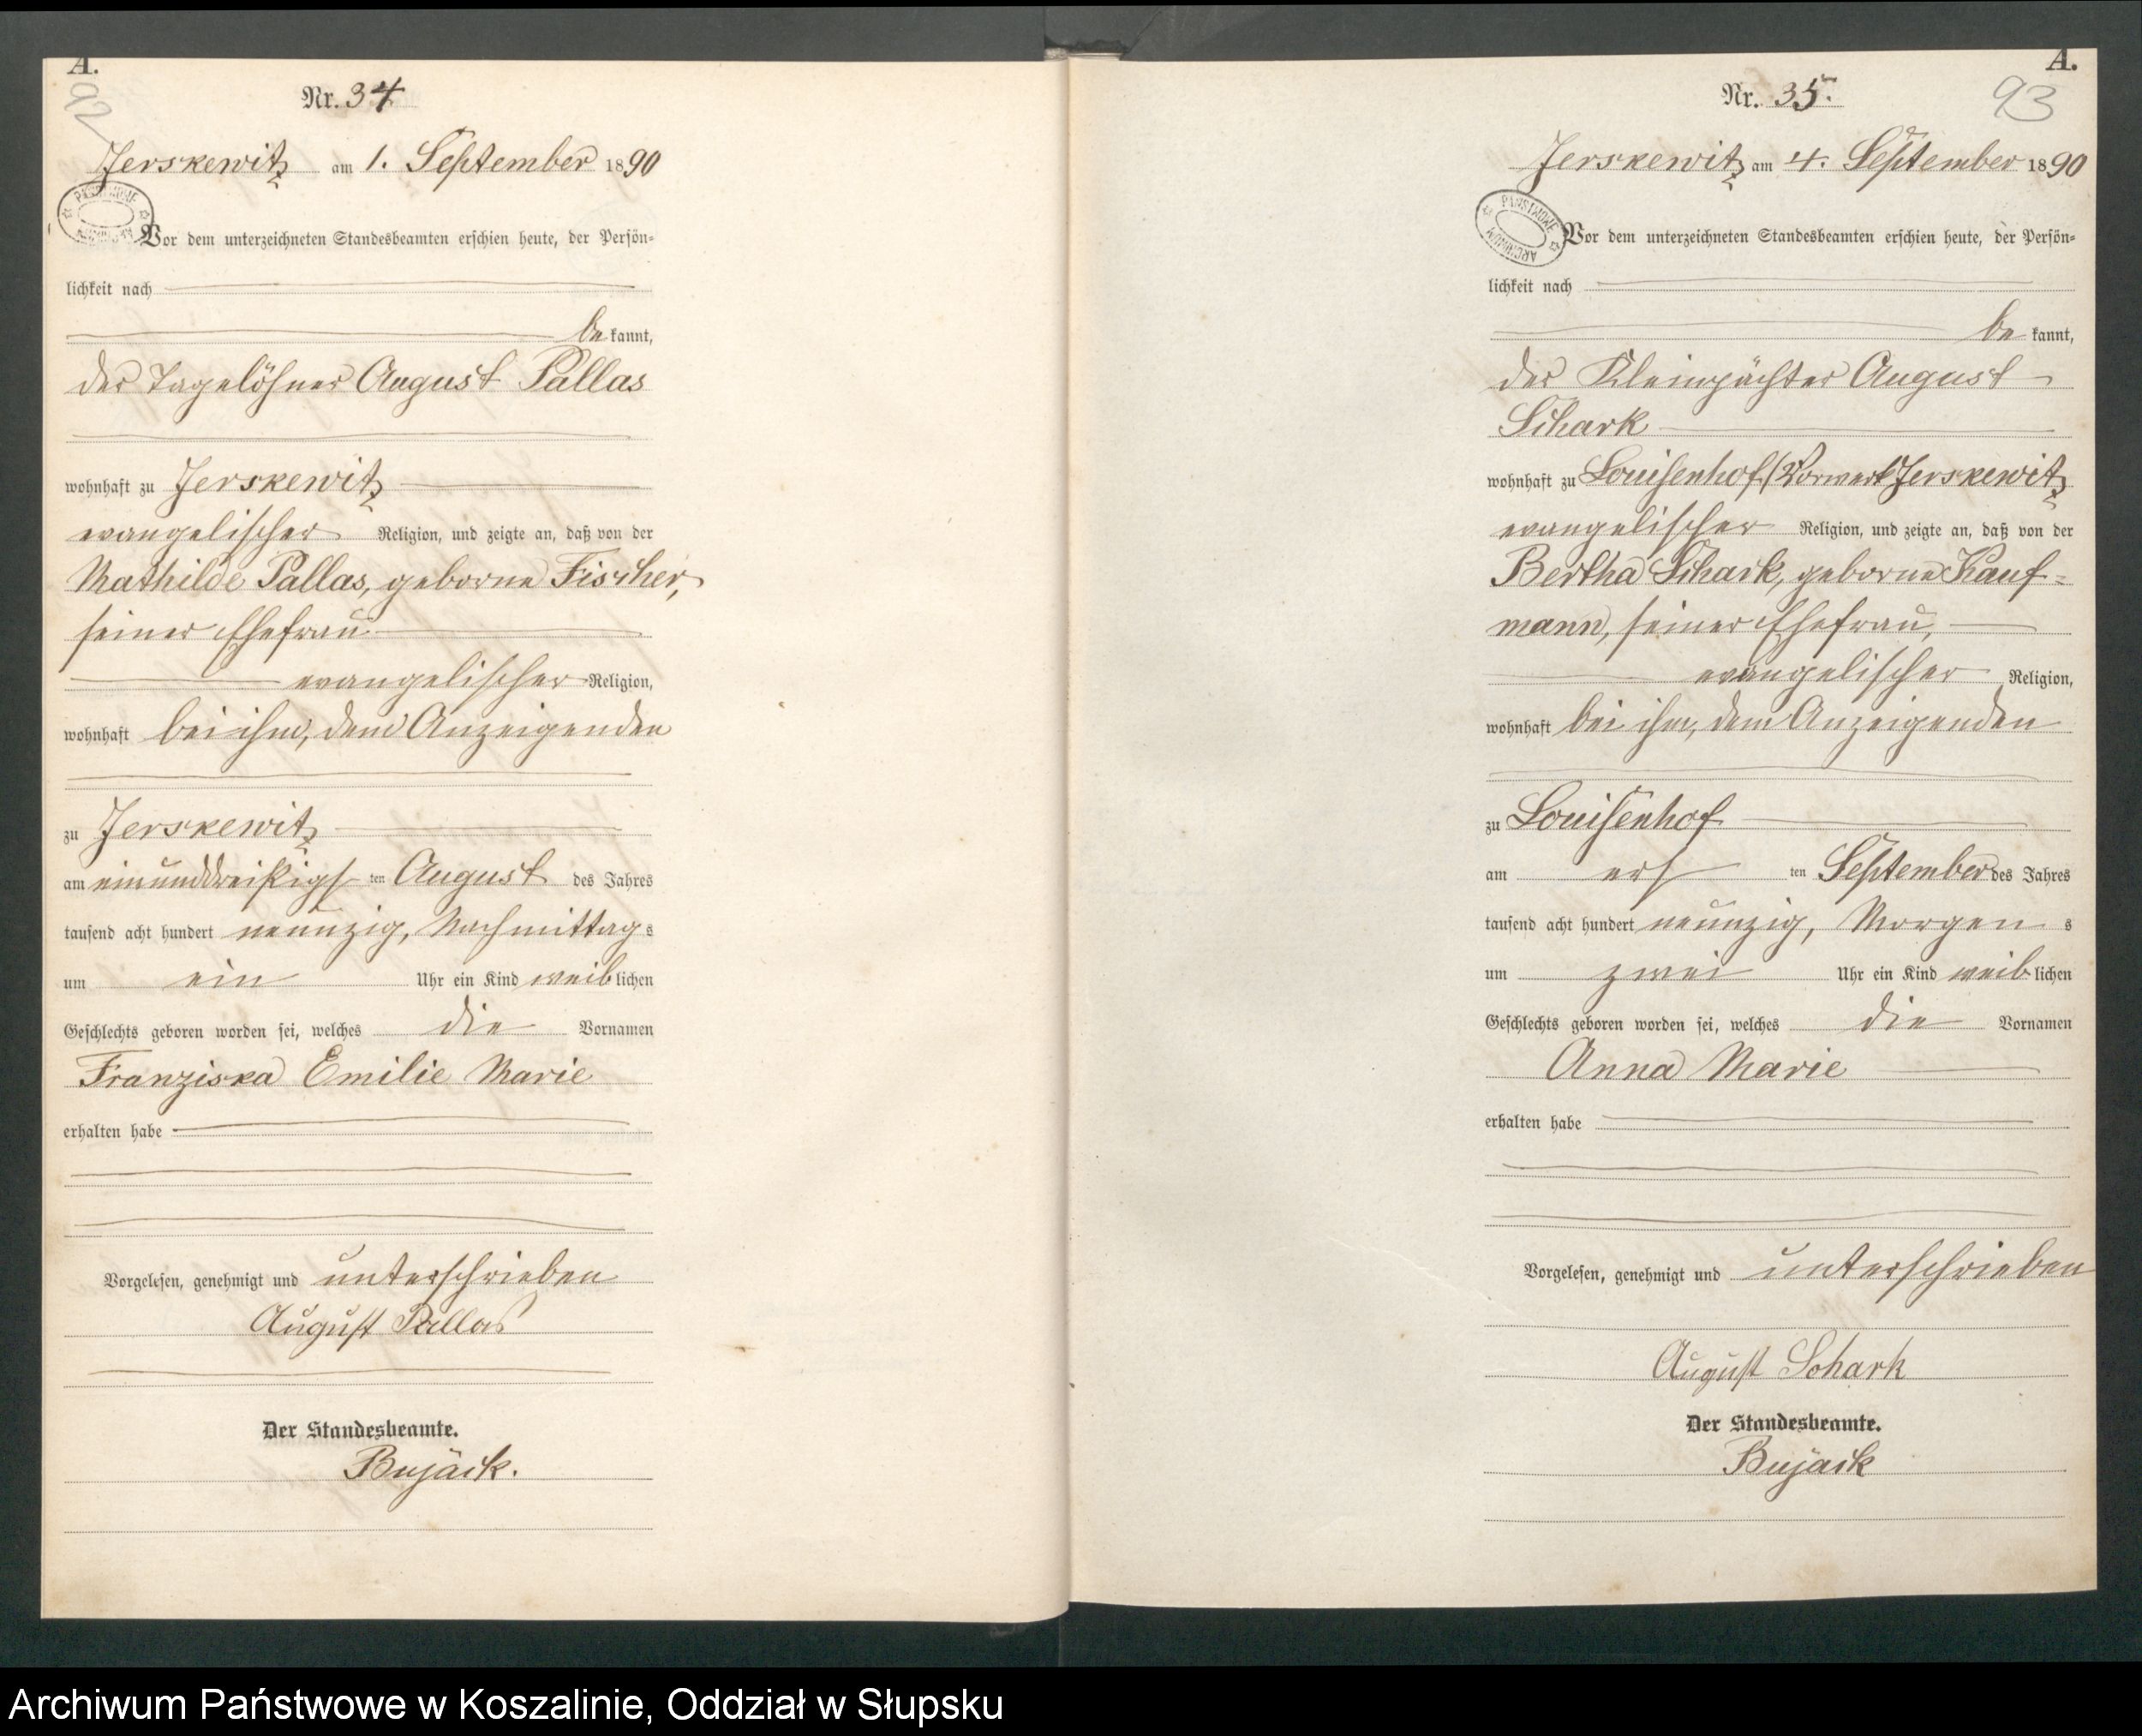 A.
92
Nr. 34
Jerskewitz am 1. September 1890
PAŃSTWOWE ARCHIWUM
Vor dem unterzeichneten Standesbeamten erschien heute, der Persön=
lichkeit nach
be kannt,
der Tagelöhner August Pallas
wohnhaft zu Jerskewitz
evangelischer Religion, und zeigte an, daß von der
Mathilde Pallas, geborne Fischer,
seiner Ehefrau
evangelischer Religion,
wohnhaft bei ihm, dem Anzeigenden
zu Jerskewitz
am einunddreißigs ten August des Jahres
tausend acht hundert neunzig, Nachmittag s
um ein Uhr ein Kind weib lichen
Geschlechts geboren worden sei, welches die Vornamen
Franziska Emilie Marie
erhalten habe
Vorgelesen, genehmigt und unterschrieben
August Pallas
Der Standesbeamte.
Bujack.
A.
93
Nr. 35.
Jerskewitz am 4. September 1890
PAŃSTWOWE ARCHIWUM
Vor dem unterzeichneten Standesbeamten erschien heute, der Persön=
lichkeit nach
be kannt,
der Kleinpächter August
Schark
wohnhaft zu Louisenhof (Vorwerk Jerskewitz
evangelischer Religion, und zeigte an, daß von der
Bertha Schark, geborne Kauf=
mann, seiner Ehefrau,
evangelischer Religion,
wohnhaft bei ihm, dem Anzeigenden
zu Louisenhof
am ers ten September des Jahres
tausend acht hundert neunzig, Morgen s
um zwei Uhr ein Kind weib lichen
Geschlechts geboren worden sei, welches die Vornamen
Anna Marie
erhalten habe
Vorgelesen, genehmigt und unterschrieben
August Schark
Der Standesbeamte.
Bujack
Archiwum Państwowe w Koszalinie, Oddział w Słupsku